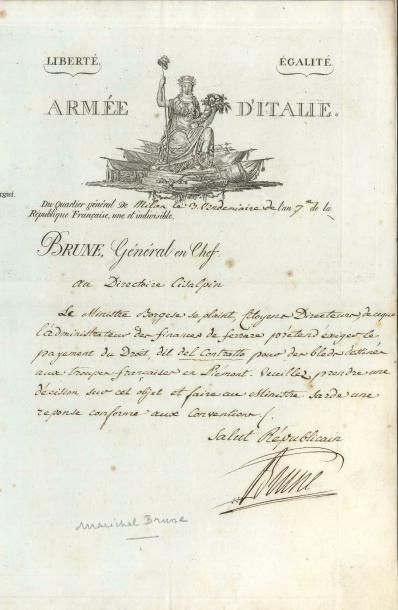 LIBERTÉ, ÉGALITÉ
ARMÉE D'ITALIE.
Du Quartier général de Milan le 3 Vendemiaire de l'an 7me de la
République Française, une et indivisible.
BRUNE, Général en Chef.
au Directoire Cisalpin
Le Ministre Borgese se plaint, Citoyens Directeurs, de ce que
l'administrateur des finances de ferrare prétend exiger le
payement du Droit, dit del Contratto pour des bleds destinés
aux troupes françaises en Piémont. Veuillez prendre une
décision sur cet objet et faire au Ministre sarde une
reponse conforme aux Conventions.
Salut Républicain
Brune
Maréchel Brune